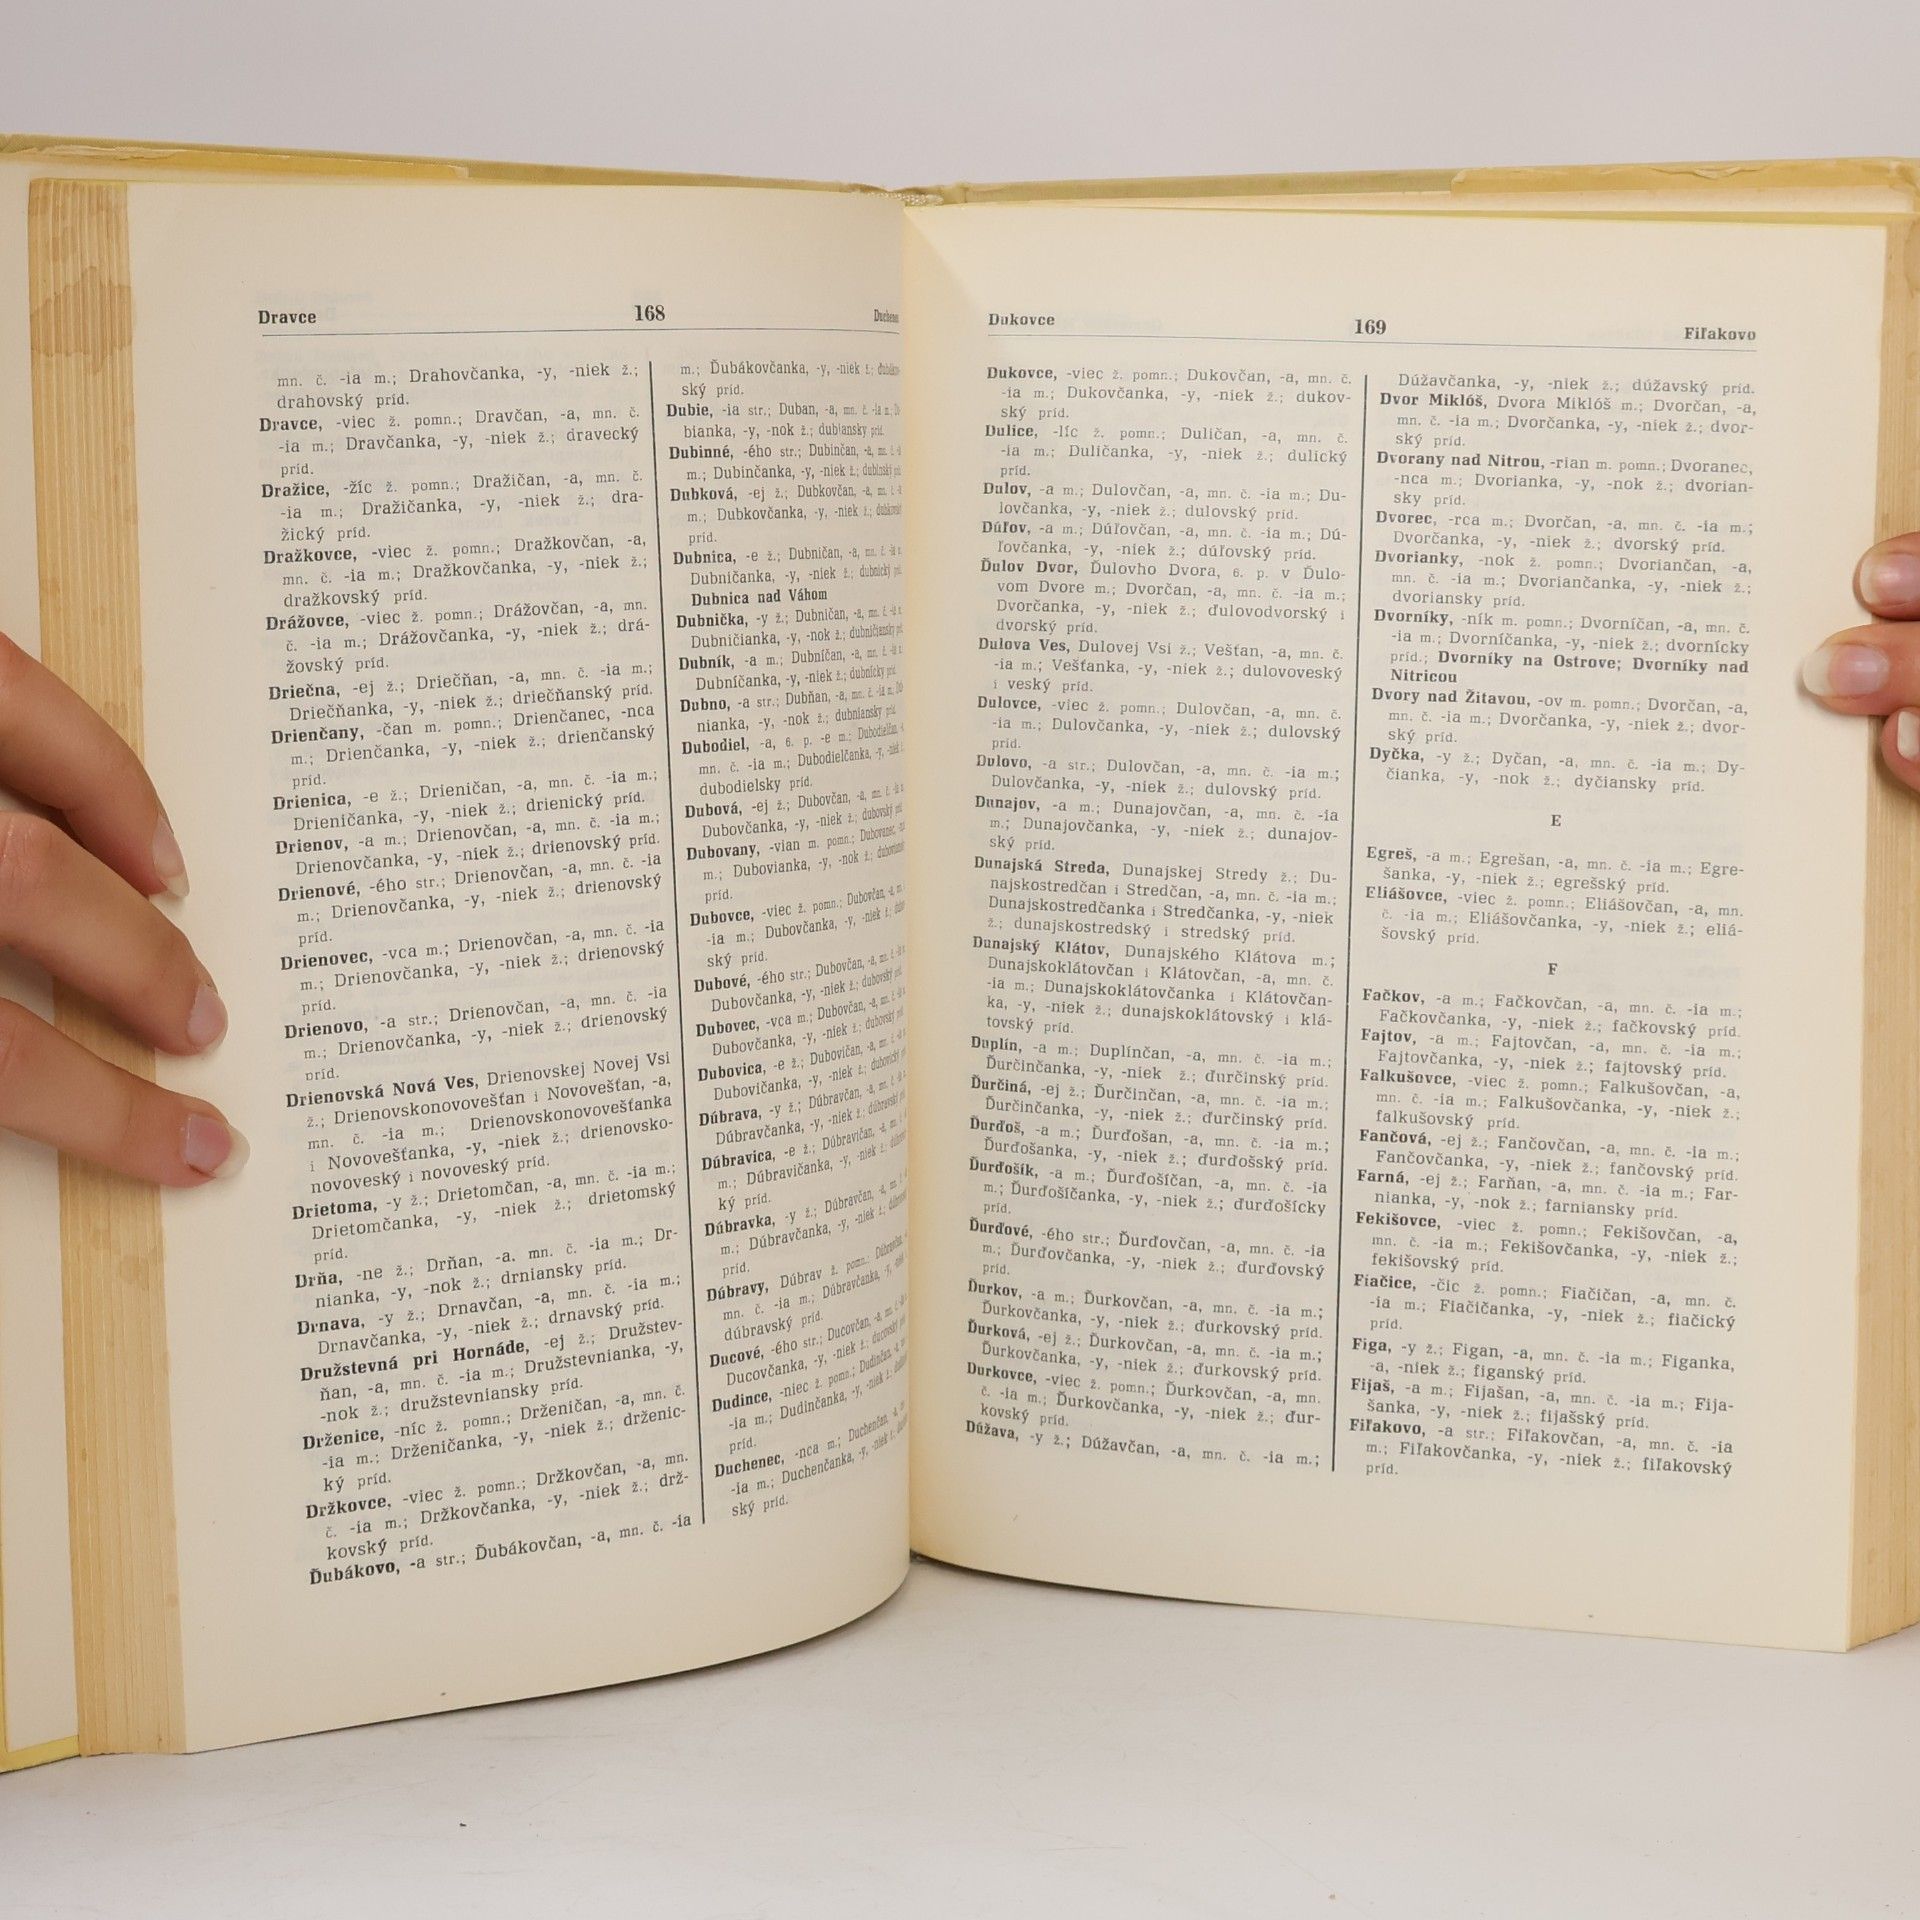 Dravce 168 Duchenec
mn. č. -ia m.; Drahovčanka, -y, -niek ž.;
drahovský príd.
Dravce, -viec ž. pomn.; Dravčan, -a, mn. č.
-ia m.; Dravčanka, -y, -niek ž.; dravecký
príd.
Dražice, -žíc ž. pomn.; Dražičan, -a, mn. č.
-ia m.; Dražičanka, -y, -niek ž.; dra-
žický príd.
Dražkovce, -viec ž. pomn.; Dražkovčan, -a,
mn. č. -ia m.; Dražkovčanka, -y, -niek ž.;
dražkovský príd.
Drážovce, -viec ž. pomn.; Drážovčan, -a, mn.
č. -ia m.; Drážovčanka, -y, -niek ž.; drá-
žovský príd.
Driečna, -ej ž.; Driečňan, -a, mn. č. -ia m.;
Driečňanka, -y, -niek ž.; driečňanský príd.
Drienčany, -čan m. pomn.; Drienčanec, -nca
m.; Drienčanka, -y, -niek ž.; drienčanský
príd.
Drienica, -e ž.; Drieničan, -a, mn. č. -ia m.;
Drieničanka, -y, -niek ž.; drienický príd.
Drienov, -a m.; Drienovčan, -a, mn. č. -ia m.;
Drienovčanka, -y, -niek ž.; drienovský príd.
Drienové, -ého str.; Drienovčan, -a, mn. č. -ia
m.; Drienovčanka, -y, -niek ž.; drienovský
príd.
Drienovec, -vca m.; Drienovčan, -a, mn. č. -ia
m.; Drienovčanka, -y, -niek ž.; drienovský
príd.
Drienovo, -a str.; Drienovčan, -a, mn. č. -ia
m.; Drienovčanka, -y, -niek ž.; drienovský
príd.
Drienovská Nová Ves, Drienovskej Novej Vsi
ž.; Drienovskonovovešťan i Novovešťan, -a,
mn. č. -ia m.; Drienovskonovovešťanka
i Novovešťanka, -y, -niek ž.; drienovsko-
novoveský i novoveský príd.
Drietoma, -y ž.; Drietomčan, -a, mn. č. -ia m.;
Drietomčanka, -y, -niek ž.; drietomský
príd.
Drňa, -ne ž.; Drňan, -a. mn. č. -ia m.; Dr-
nianka, -y, -nok ž.; drniansky príd.
Drnava, -y ž.; Drnavčan, -a, mn. č. -ia m.;
Drnavčanka, -y, -niek ž.; drnavský príd.
Družstevná pri Hornáde, -ej ž.; Družstev-
ňan, -a, mn. č. -ia m.; Družstevnianka, -y,
-nok ž.; družstevniansky príd.
Drženice, -níc ž. pomn.; Drženičan, -a, mn. č.
-ia m.; Drženičanka, -y, -niek ž.; drženic-
ký príd.
Držkovce, -viec ž. pomn.; Držkovčan, -a, mn.
č. -ia m.; Držkovčanka, -y, -niek ž.; drž-
kovský príd.
Ďubákovo, -a str.; Ďubákovčan, -a, mn. č. -ia
m.; Ďubákovčanka, -y, -niek ž.; ďubákov-
ský príd.
Dubie, -ia str.; Duban, -a, mn. č. -ia m.; Du-
bianka, -y, -nok ž.; dubiansky príd.
Dubinné, -ého str.; Dubinčan, -a, mn. č. -ia
m.; Dubinčanka, -y, -niek ž.; dubinský príd.
Dubková, -ej ž.; Dubkovčan, -a, mn. č. -ia
m.; Dubkovčanka, -y, -niek ž.; dubkovský
príd.
Dubnica, -e ž.; Dubničan, -a, mn. č. -ia m.
Dubničanka, -y, -niek ž.; dubnický príd.
Dubnica nad Váhom
Dubnička, -y ž.; Dubničan, -a, mn. č. -ia m.
Dubničianka, -y, -nok ž.; dubničiansky príd.
Dubník, -a m.; Dubníčan, -a, mn. č. -ia m.
Dubníčanka, -y, -niek ž.; dubnícky príd.
Dubno, -a str.; Dubňan, -a, mn. č. -ia m. Dub-
nianka, -y, -nok ž.; dubniansky príd.
Dubodiel, -a, 6. p. -e m.; Dubodielčan, -a,
mn. č. -ia m.; Dubodielčanka, -y, -niek ž.;
dubodielsky príd.
Dubová, -ej ž.; Dubovčan, -a, mn. č. -ia m.
Dubovčanka, -y, -niek ž.; dubovský príd.
Dubovany, -vian m. pomn.; Dubovanec, -nca
m.; Dubovianka, -y, -nok ž.; duboviansky
príd.
Dubovce, -viec ž. pomn.; Dubovčan, -a, mn. č.
-ia m.; Dubovčanka, -y, -niek ž.; dubov-
ský príd.
Dubové, -ého str.; Dubovčan, -a, mn. č. -ia m.
Dubovčanka, -y, -niek ž.; dubovský príd.
Dubovec, -vca m.; Dubovčan, -a, mn. č. -ia m.
Dubovčanka, -y, -niek ž.; dubovský príd.
Dubovica, -e ž.; Dubovičan, -a, mn. č. -ia m.
Dubovičanka, -y, -niek ž.; dubovický príd.
Dúbrava, -y ž.; Dúbravčan, -a, mn. č. -ia m.
Dúbravčanka, -y, -niek ž.; dúbravský príd.
Dúbravica, -e ž.; Dúbravičan, -a, mn. č. -ia
m.; Dúbravičanka, -y, -niek ž.; dúbravic-
ký príd.
Dúbravka, -y ž.; Dúbravčan, -a, mn. č. -ia
m.; Dúbravčanka, -y, -niek ž.; dúbravský
príd.
Dúbravy, Dúbrav ž. pomn.; Dúbravčan, -a,
mn. č. -ia m.; Dúbravčanka, -y, -niek ž.;
dúbravský príd.
Ducové, -ého str.; Ducovčan, -a, mn. č. -ia m.
Ducovčanka, -y, -niek ž.; ducovský príd.
Dudince, -niec ž. pomn.; Dudinčan, -a, mn. č.
-ia m.; Dudinčanka, -y, -niek ž.; dudinský
príd.
Duchenec, -nca m.; Duchenčan, -a, mn. č.
-ia m.; Duchenčanka, -y, -niek ž.; duchen-
ský príd.
Dukovce 169 Fiľakovo
Dukovce, -viec ž. pomn.; Dukovčan, -a, mn. č.
-ia m.; Dukovčanka, -y, -niek ž.; dukov-
ský príd.
Dulice, -líc ž. pomn.; Duličan, -a, mn. č.
-ia m.; Duličanka, -y, -niek ž.; dulický
príd.
Dulov, -a m.; Dulovčan, -a, mn. č. -ia m.; Du-
lovčanka, -y, -niek ž.; dulovský príd.
Dúľov, -a m.; Dúľovčan, -a, mn. č. -ia m.; Dú-
ľovčanka, -y, -niek ž.; dúľovský príd.
Ďulov Dvor, Ďulovho Dvora, 6. p. v Ďulo-
vom Dvore m.; Dvorčan, -a, mn. č. -ia m.;
Dvorčanka, -y, -niek ž.; ďulovodvorský i
dvorský príd.
Dulova Ves, Dulovej Vsi ž.; Vešťan, -a, mn. č.
-ia m.; Vešťanka, -y, -niek ž.; dulovoveský
i veský príd.
Dulovce, -viec ž. pomn.; Dulovčan, -a, mn. č.
-ia m.; Dulovčanka, -y, -niek ž.; dulovský
príd.
Dulovo, -a str.; Dulovčan, -a, mn. č. -ia m.;
Dulovčanka, -y, -niek ž.; dulovský príd.
Dunajov, -a m.; Dunajovčan, -a, mn. č. -ia
m.; Dunajovčanka, -y, -niek ž.; dunajov-
ský príd.
Dunajská Streda, Dunajskej Stredy ž.; Du-
najskostredčan i Stredčan, -a, mn. č. -ia m.;
Dunajskostredčanka i Stredčanka, -y, -niek
ž.; dunajskostredský i stredský príd.
Dunajský Klátov, Dunajského Klátova m.;
Dunajskoklátovčan i Klátovčan, -a, mn. č.
-ia m.; Dunajskoklátovčanka i Klátovčan-
ka, -y, -niek ž.; dunajskoklátovský i klá-
tovský príd.
Duplín, -a m.; Duplínčan, -a, mn. č. -ia m.;
Ďurčinčanka, -y, -niek ž.; ďurčinský príd.
Ďurčiná, -ej ž.; Ďurčinčan, -a, mn. č. -ia m.;
Ďurčinčanka, -y, -niek ž.; ďurčinský príd.
Ďurďoš, -a m.; Ďurďošan, -a, mn. č. -ia m.;
Ďurďošanka, -y, -niek ž.; ďurďošský príd.
Ďurďošík, -a m.; Ďurďošíčan, -a, mn. č. -ia
m.; Ďurďošíčanka, -y, -niek ž.; ďurďošícky
príd.
Ďurďové, -ého str.; Ďurďovčan, -a, mn. č. -ia
m.; Ďurďovčanka, -y, -niek ž.; ďurďovský
príd.
Ďurkov, -a m.; Ďurkovčan, -a, mn. č. -ia m.;
Ďurkovčanka, -y, -niek ž.; ďurkovský príd.
Ďurková, -ej ž.; Ďurkovčan, -a, mn. č. -ia m.;
Ďurkovčanka, -y, -niek ž.; ďurkovský príd.
Durkovce, -viec ž. pomn.; Ďurkovčan, -a, mn.
č. -ia m.; Ďurkovčanka, -y, -niek ž.; ďur-
kovský príd.
Dúžava, -y ž.; Dúžavčan, -a, mn. č. -ia m.;
Dúžavčanka, -y, -niek ž.; dúžavský príd.
Dvor Miklóš, Dvora Miklóš m.; Dvorčan, -a,
mn. č. -ia m.; Dvorčanka, -y, -niek ž.; dvor-
ský príd.
Dvorany nad Nitrou, -rian m. pomn.; Dvoranec,
-nca m.; Dvorianka, -y, -nok ž.; dvorian-
sky príd.
Dvorec, -rca m.; Dvorčan, -a, mn. č. -ia m.;
Dvorčanka, -y, -niek ž.; dvorský príd.
Dvorianky, -nok ž. pomn.; Dvoriančan, -a,
mn. č. -ia m.; Dvoriančanka, -y, -niek ž.;
dvoriansky príd.
Dvorníky, -ník m. pomn.; Dvorníčan, -a, mn. č.
-ia m.; Dvorníčanka, -y, -niek ž.; dvornícky
príd.; Dvorníky na Ostrove; Dvorníky nad
Nitricou
Dvory nad Žitavou, -ov m. pomn.; Dvorčan, -a,
mn. č. -ia m.; Dvorčanka, -y, -niek ž.; dvor-
ský príd.
Dyčka, -y ž.; Dyčan, -a, mn. č. -ia m.; Dy-
čianka, -y, -nok ž.; dyčiansky príd.
E
Egreš, -a m.; Egrešan, -a, mn. č. -ia m.; Egre-
šanka, -y, -niek ž.; egrešský príd.
Eliášovce, -viec ž. pomn.; Eliášovčan, -a, mn.
č. -ia m.; Eliášovčanka, -y, -niek ž.; eliá-
šovský príd.
F
Fačkov, -a m.; Fačkovčan, -a, mn. č. -ia m.;
Fačkovčanka, -y, -niek ž.; fačkovský príd.
Fajtov, -a m.; Fajtovčan, -a, mn. č. -ia m.;
Fajtovčanka, -y, -niek ž.; fajtovský príd.
Falkušovce, -viec ž. pomn.; Falkušovčan, -a,
mn. č. -ia m.; Falkušovčanka, -y, -niek ž.;
falkušovský príd.
Fančová, -ej ž.; Fančovčan, -a, mn. č. -ia m.;
Fančovčanka, -y, -niek ž.; fančovský príd.
Farná, -ej ž.; Farňan, -a, mn. č. -ia m.; Far-
nianka, -y, -nok ž.; farniansky príd.
Fekišovce, -viec ž. pomn.; Fekišovčan, -a,
mn. č. -ia m.; Fekišovčanka, -y, -niek ž.;
fekišovský príd.
Fiačice, -čic ž. pomn.; Fiačičan, -a, mn. č.
-ia m.; Fiačičanka, -y, -niek ž.; fiačický
príd.
Figa, -y ž.; Figan, -a, mn. č. -ia m.; Figanka,
-a, -niek ž.; figanský príd.
Fijaš, -a m.; Fijašan, -a, mn. č. -ia m.; Fija-
šanka, -y, -niek ž.; fijašský príd.
Fiľakovo, -a str.; Fiľakovčan, -a, mn. č. -ia
m.; Fiľakovčanka, -y, -niek ž.; fiľakovský
príd.